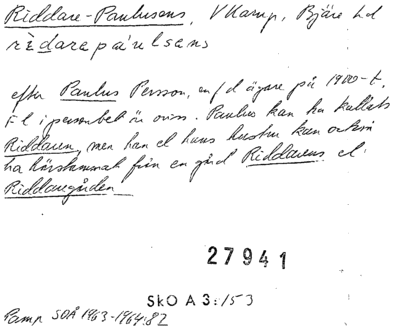 Riddare-Paulusens, V Karup, Bjäre hd
rèdarepáulsens
efter Paulus Persson, en f d ägare på 1900-t.
F l i personbet är oviss. Paulus kan ha kallats
Riddaren, men han el hans hustru kan också
ha härstammat från en gård Riddarens el.
Riddaregården
27941
SkO A 3:153
Ramp SOÅ 1963-1964:82